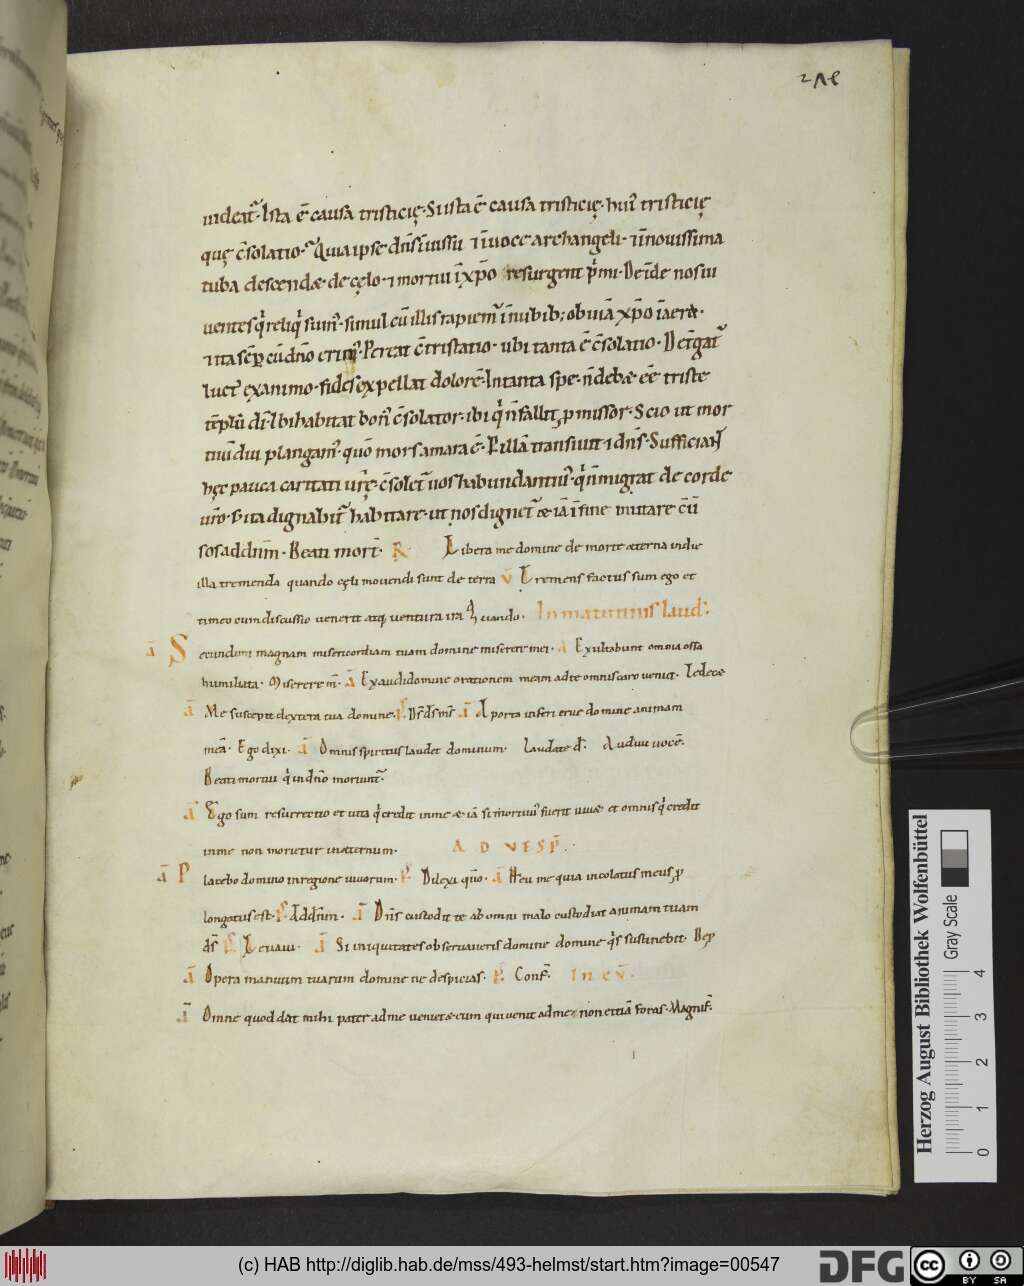 271
uideat᷑. Ista ē causa tristicię. Si ista ē causa tristicię. hui᷒ tristicię
quę c̄solatio. Quia ipse dn̄s in iussu ⁊ in uoce archangeli. ⁊ in nouissima
tuba descendæ. de cęlo. ⁊ mortui in xp̄o resurgent p̄mi. Deinde nos ui
uentes qͥ reliqͥ sum᷒. simul cū illis rapiem᷑ in nubib; obuiā xp̄o in aera.
⁊ ita sēp cū dn̄o erim᷒. Pereat c̄tristatio. ubi tanta ē c̄solatio. Det̄gat᷑
luct᷒ ex animo. fides expellat dolorē. In tanta spe. n̄ debæ eē triste
tēplū dī. Ibi habitat bon᷒ c̄solator. ibi qͥ n̄ fallit ꝓmissor. Scio ut mor
tuū diu plangam᷒. quō mors amara ē. P illā transiuit ⁊ dn̄s. Sufficiant
hęc pauca caritati urę̄. c̄solet᷑ uos habundanti᷒. qͥ n̄ migrat de corde
uro̅. S; ita dignabit᷑ habitare. ut nos dignet᷑ æ iā in fine mutare cū
sos ad dn̄m. Beati mort̄. R Libera me domine de morte æterna in die
illa tremenda quando cęli mouendi sunt de terra V Tremens factus sum ego et
timeo cum discussio uenerit atq; uentura ira Quando. In matutinis laud᷒.
a Secundum magnam misericordiam tuam domine miserere mei. a Exultabunt omnia ossa
humiliata. Miserere m̄. a Exaudi domine orationem meam ad te omnis caro ueniet. Te decæ
a Me suscepit dextera tua domine. P Ds̄ ds̄ ms̄ a A porta inferi erue domine animam
meā. Ego dixi. a Omnis spiritus laudet dominum. Laudate d᷒. Audiui uocē.
Beati mortui qͥ in dn̄o moriunt᷑.
a Ego sum resurrectio et uita qͥ credit in me æ iā si mortuu᷒ fuerit uiuæ et omnis qͥ credit
in me non morietur in æternum. AD VESP̄.
a Placebo domino in regione uiuorum. P Dilexi quō. a Heu me quia incolatus meus ꝓ
longatus est. P Ad dn̄m. a Dn̄s custodit te ab omni malo custodiat animam tuam
dn̄s P Leuaui. a Si iniquitates obseruaueris domine domine qͥs sustinebit. De ꝓ
a Opera manuum tuarum domine ne despicias. P Conf̄. In eū.
a Omne quod dat mihi pater ad me ueniet æ eum qui uenit ad me non eitiā foras. Magnif̄.
Herzog August Bibliothek Wolfenbüttel
Gray Scale
0 1 2 3 4
(c) HAB http://diglib.hab.de/mss/493-helmst/start.htm?image=00547
DFG
cc BY SA